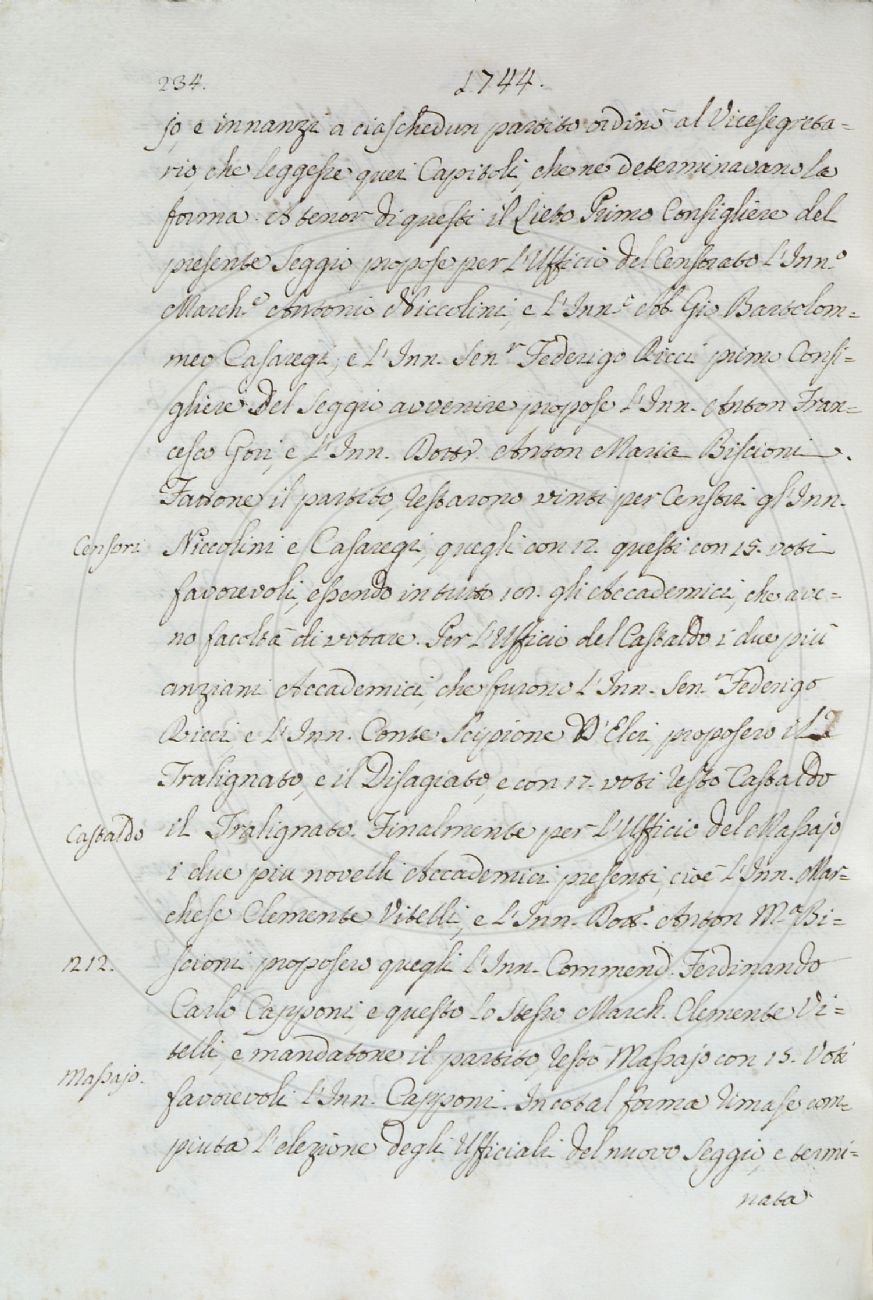 234. 1744.
so, e innanzi a ciaschedun partito ordinò al Vicesegreta=
rio, che leggesse quei Capitoli, che ne determinavano la
forma. A tenor di questi il Lieto Primo Consigliere del
presente Seggio propose per l'Uffício del Censorato l'Inn.o
March.e Antonio Niccolini, e l'Inn.o Ab. Gio. Bartolom=
meo Casaregi, e l'Inn. Sen.r Federigo Ricci primo Consi=
gliere del Seggio avvenire propose l'Inn. Anton Fran=
cesco Gori, e l'Inn. Dottr. Anton Maria Biscioni.
Fattone il partito, restarono vinti per Censori gl'Inn.
Censori Niccolini e Casaregi, quegli con 17. questi con 15. voti
favorevoli, essendo in tutto gli Accademici, che ave=
no facoltà di votare. Per l'Uffício del Castaldo i due più
anziani Accademici, che furono l'Inn. Sen.r Federigo
Ricci, e l'Inn. Conte Scipione D'Elci, proposero il
Tralignato, e il Disagiato, e con 17. voti restò Castaldo
Castaldo il Tralignato. Finalmente per l'Uffício del Massajo
i due piu novelli Accademici presenti, cioè l'Inn. Mar=
chese Clemente Vitelli, e l'Inn. Dott. Anton M.a Bi=
1212. scioni proposero quegli l'Inn. Commend. Ferdinando
Carlo Capponi e questo lo stesso March. Clemente Vi=
telli, e mandatone il partito, restò Massajo con 15. Voti
Massajo. favorevoli l'Inn. Capponi. In cotal forma rimase com=
piuta l'elezione degli Ufficiali del nuovo Seggio, e termi=
nata